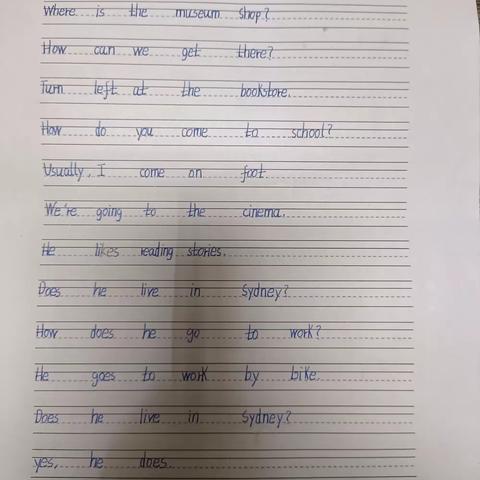 Where is the museum shop?
How can we get there?
Turn left at the bookstore.
How do you come to school?
Usually, I come on foot.
We're going to the cinema.
He likes reading stories.
Does he live in Sydney?
How does he go to work?
He goes to work by bike.
Does he live in Sydney?
yes, he does.